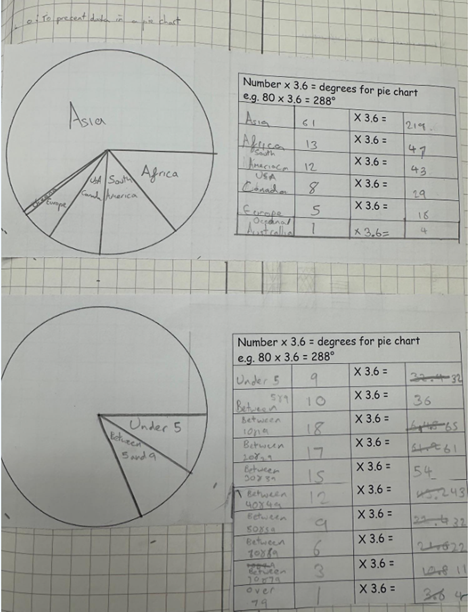 represent data in a pie chart
Asia
Africa
South
America
USA
Canada
Europe
Number x 3.6 = degrees for pie chart
e.g. 80 x 3.6 = 288°
Asia 61 X 3.6 = 219.
Africa 13 X 3.6 = 47
South
America 12 X 3.6 = 43
USA
Canada 8 X 3.6 = 29
Europe 5 X 3.6 = 18
1 x 3.6= 4
Under 5
Between
5 and 9
Number x 3.6 = degrees for pie chart
e.g. 80 x 3.6 = 288°
Under 5 9 X 3.6 = 32
Between 5&9 10 X 3.6 = 36
Between
10&19 18 X 3.6 = 65
Between
20&29 17 X 3.6 = 61
Between
30&39 15 X 3.6 = 54
Between
40&49 12 X 3.6 = 43
Between
9 X 3.6 = 32
Between
6 X 3.6 = 22
Between
3 X 3.6 = 10.8 11
over
79 1 X 3.6 = 3.6 4